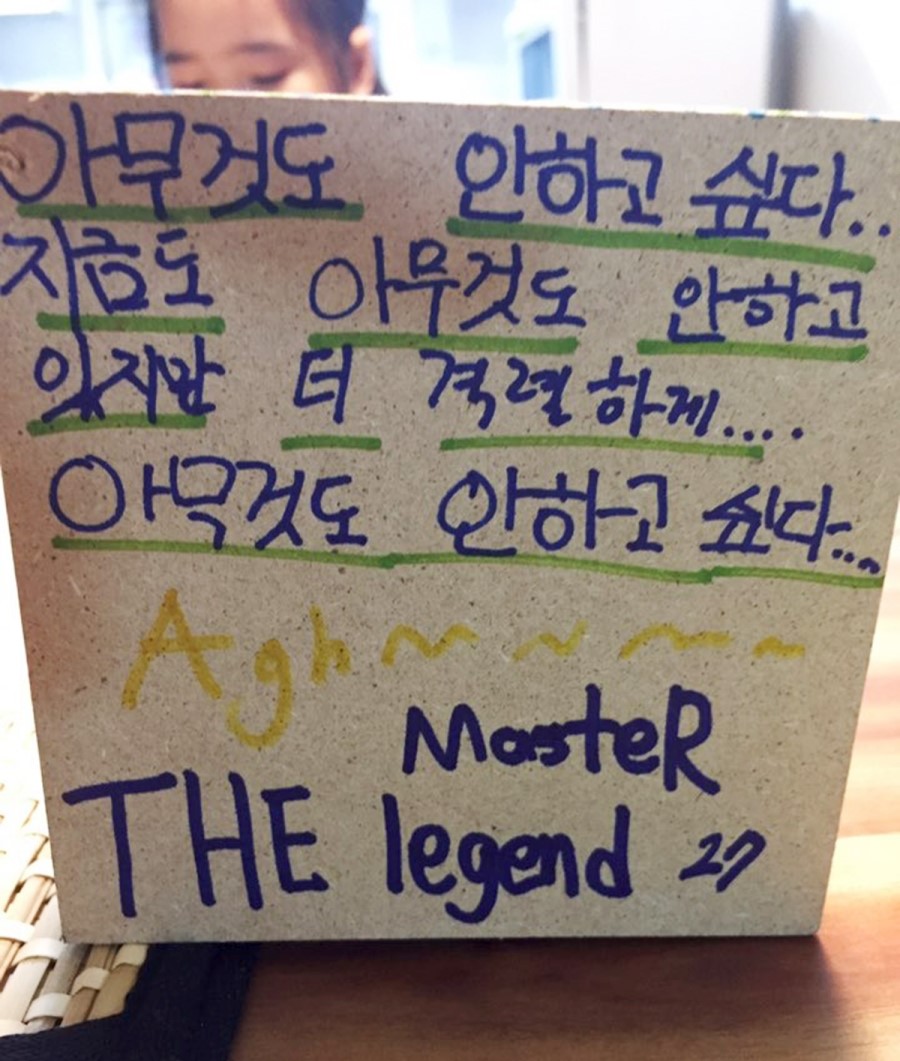 아무것도 안하고 싶다..
지금도 아무것도 안하고
있지만 더 격렬하게....
아무것도 안하고 싶다....
Agh~ ~ ~ ~
MasteR
THE legend 27